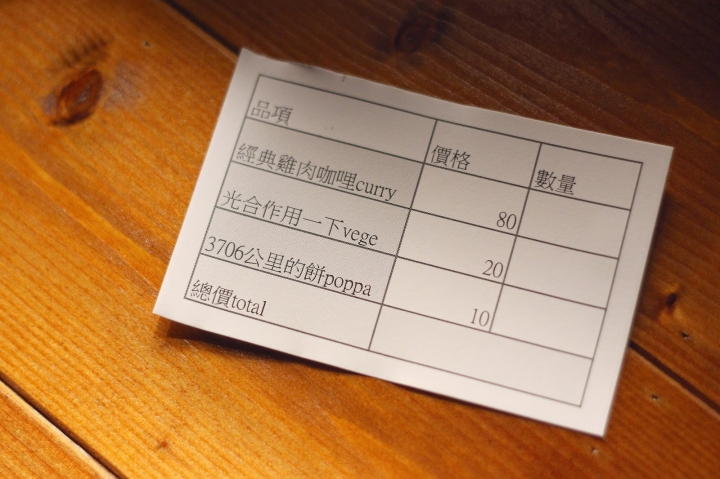 品項 價格 數量
經典雞肉咖哩curry 80
光合作用一下vege 20
3706公里的餅poppa 10
總價total